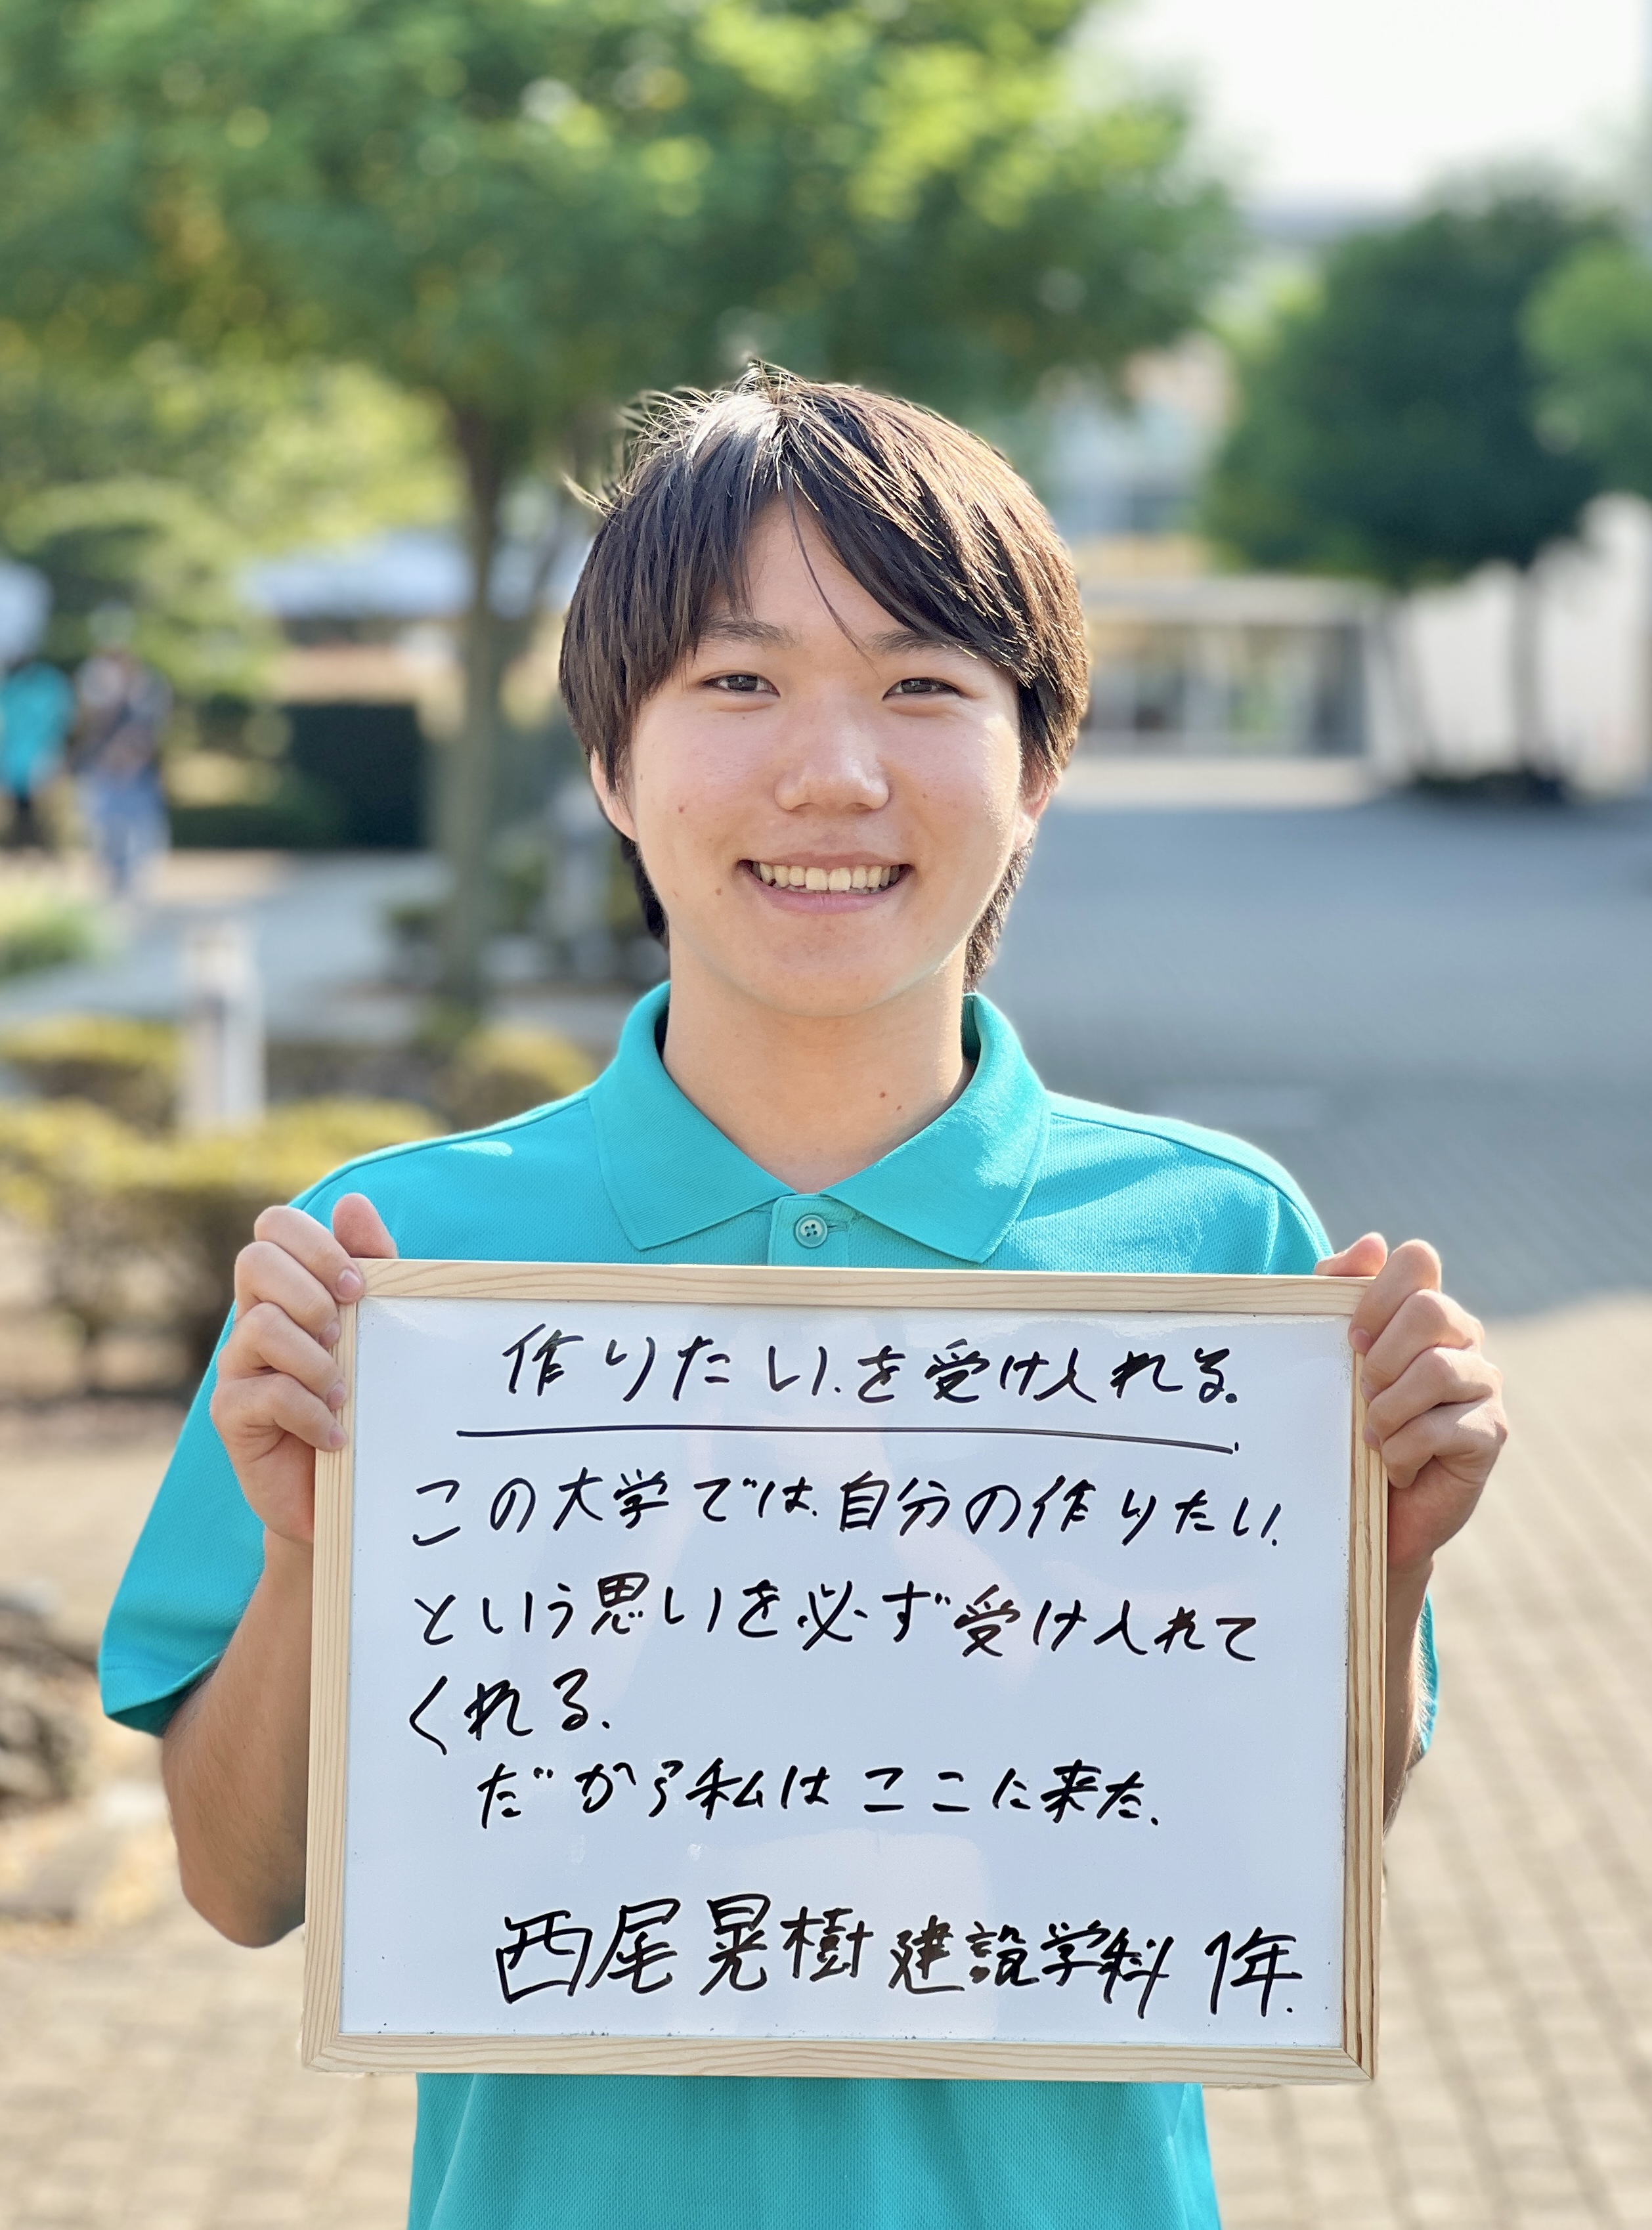 作りたい.を受け入れる.
この大学では.自分の作りたい.
という思いを必ず受け入れて
くれる.
だから私はここに来た.
西尾晃樹 建設学科 1年.